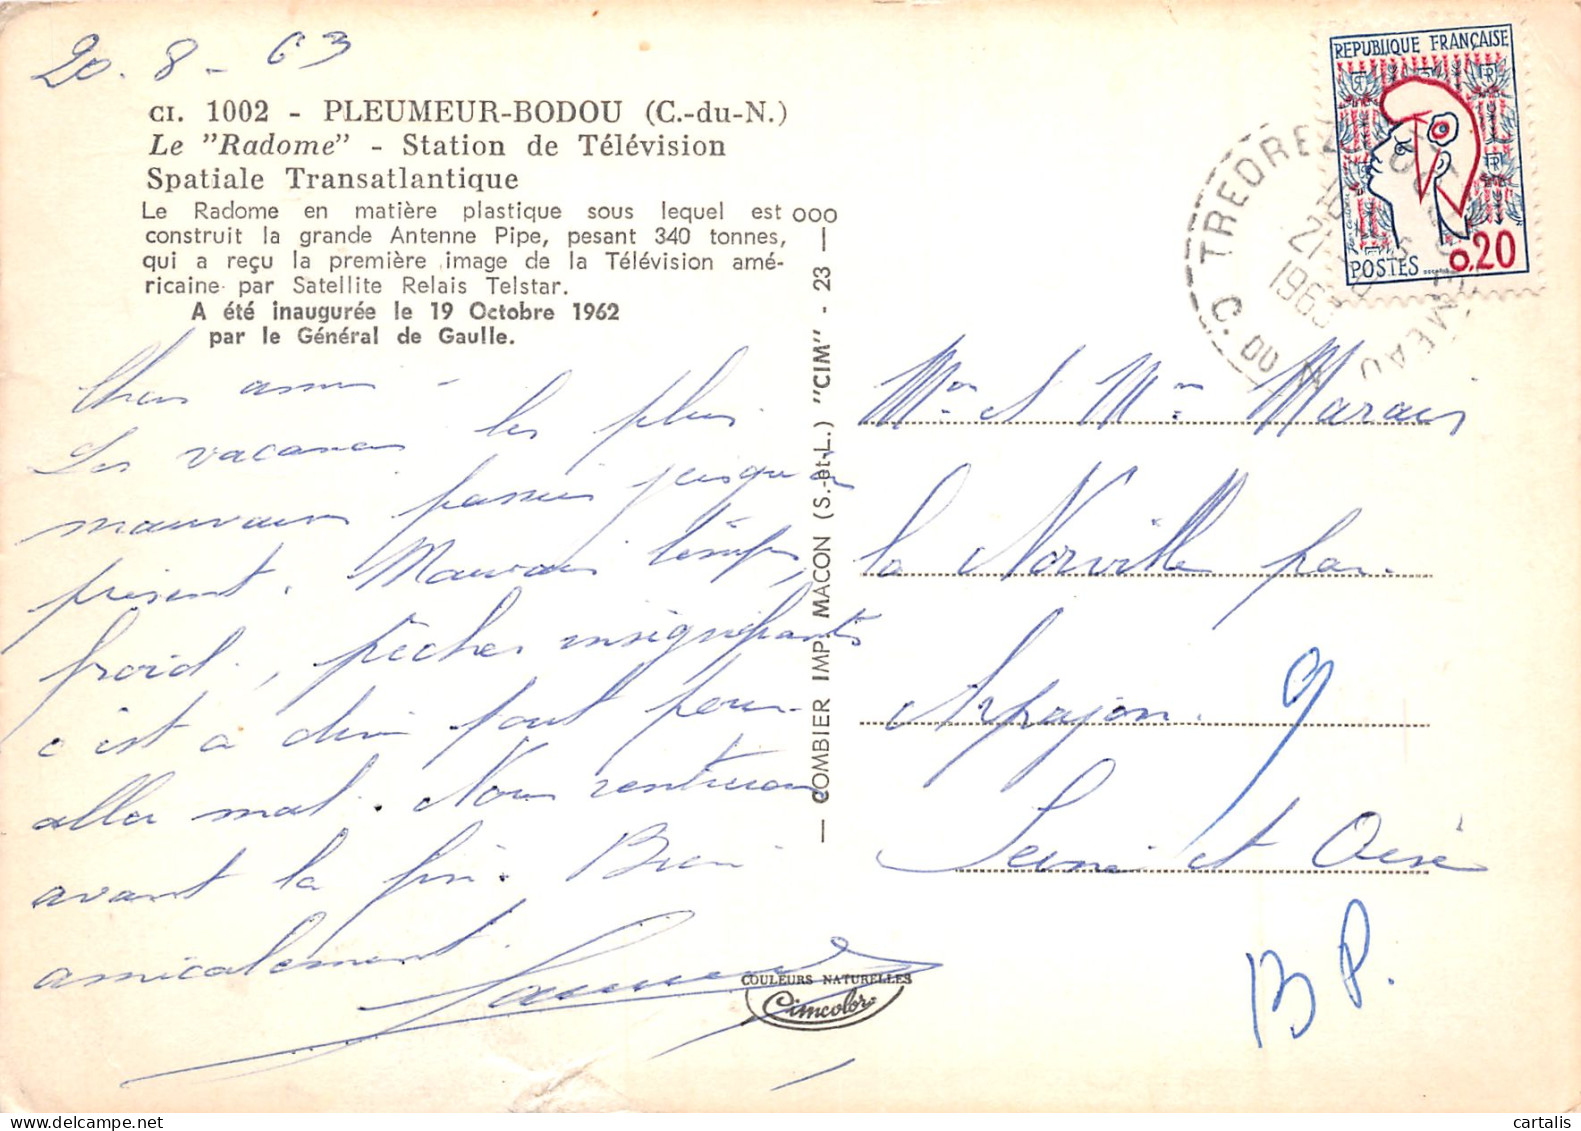 20.8-63
CI. 1002 - PLEUMEUR-BODOU (C.-du-N.)
Le "Radome" - Station de Télévision
Spatiale Transatlantique
Le Radome en matière plastique sous lequel est
construit la grande Antenne Pipe, pesant 340 tonnes,
qui a reçu la première image de la Télévision amé-
ricaine par Satellite Relais Telstar.
A été inaugurée le 19 Octobre 1962
par le Général de Gaulle.
Chers amis -
Les vacances les plus
mauvaises passées jusqu'à
présent. Mauvais temps,
froid, pêches insignifiants
c'est à dire tout pour
aller mal. Nous rentrerons
avant la fin. Bien
amicalement
COMBIER IMP. MACON (S.-et-L.) "CIM" - 23 - ooo
COULEURS NATURELLES
Cimcolor
REPUBLIQUE FRANÇAISE
POSTES
0,20
TREDREZ
21
1963
C. DU N
Mr et Mme Marais
la Norville par
Arpajon. 9
Seine et Oise
B P.
cartalis